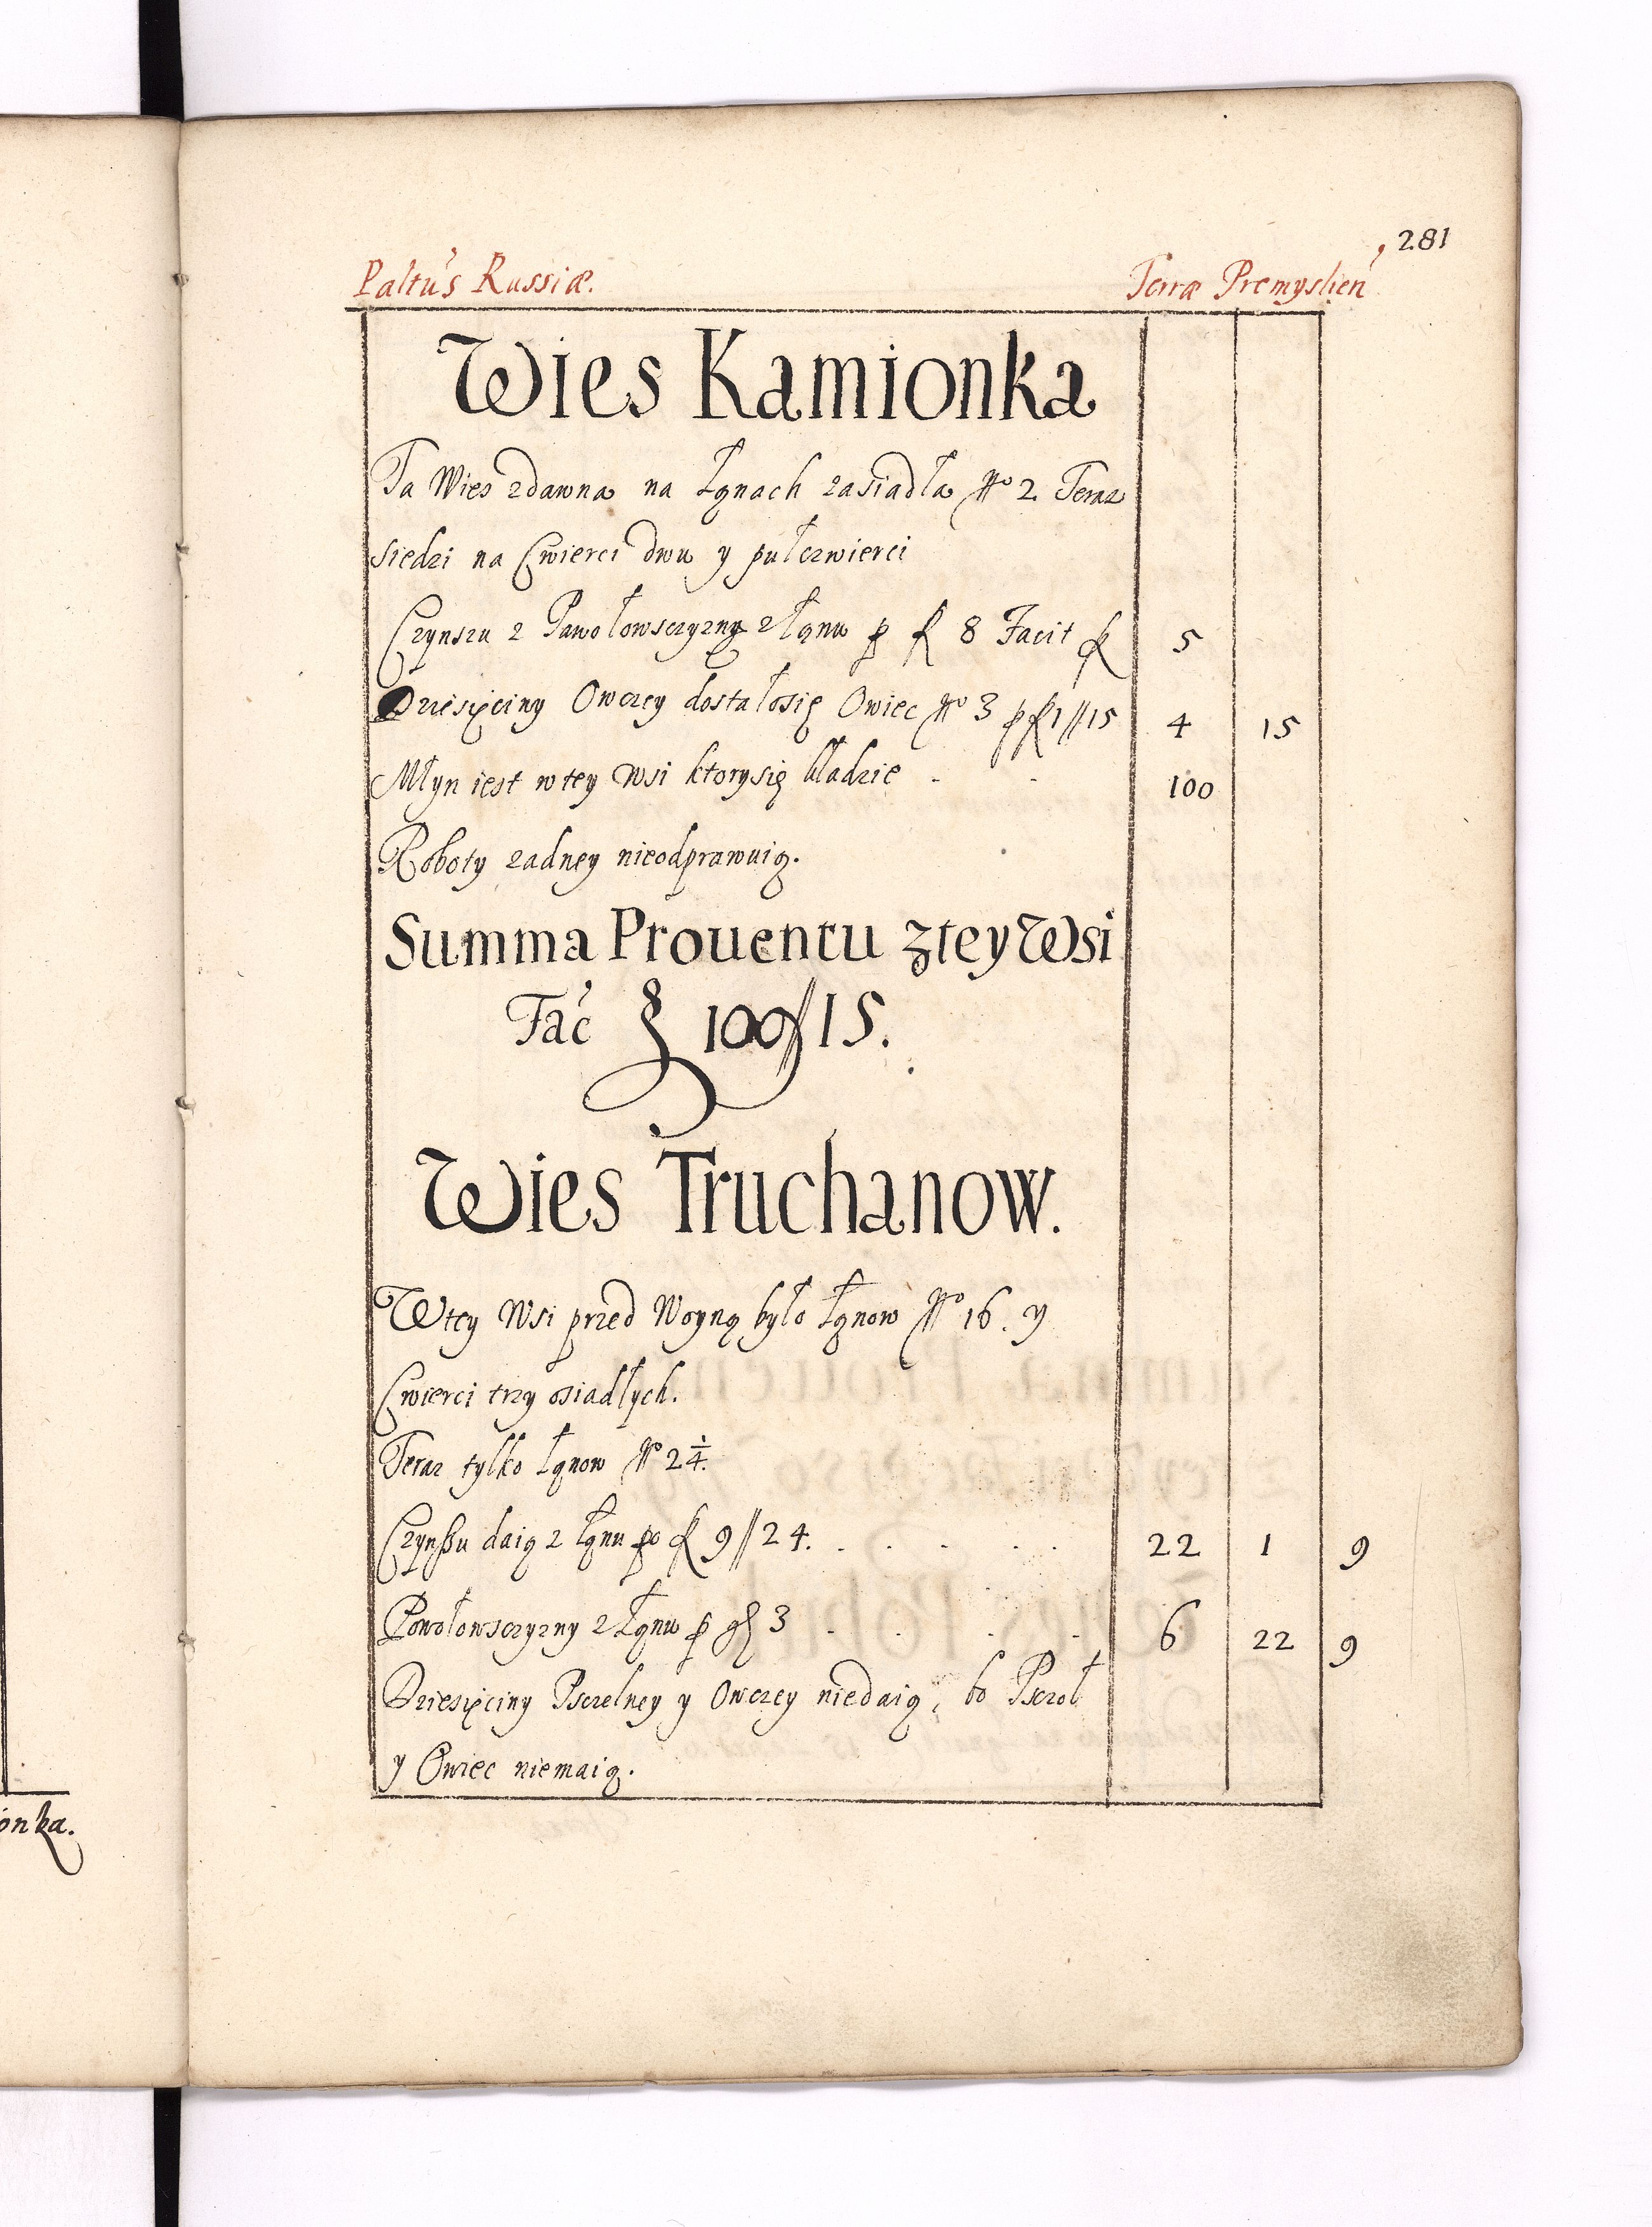 281
Paltu's Russiæ. Terræ Premyslien'
Wies Kamionka
Ta Wies zdawna na Łąnach zasiadła No 2 Teraz
siedzi na Cwierci dwu y pułczwierci
Czynszu z Pawołowsczyzny z Łąnu p fl 8 Facit fl 5
Dziesięciny Owczey dostałosię Owiec No 3 p fl 1//15 4 15
Młyn iest wtey Wsi ktorysię kładzie . . 100
Roboty zadney nieodprawuią.
Summa Prouentu ztey Wsi
Fac' fl 109//15.
Wies Truchanow.
Wtey Wsi przed Woyną było Łąnow No 16. y
Cwierci trzy osiadłych.
Teraz tylko Łąnow No 2 1/4.
Czynßu daią z Łąnu po fl 9//24. . . . . . 22 1 9
Powołowsczyzny z Łąnu p gł 3 . . . . 6 22 9
Dziesięciny Pszelney y Owczey niedaią, bo Pszoł
y Owiec niemaią.
onka.